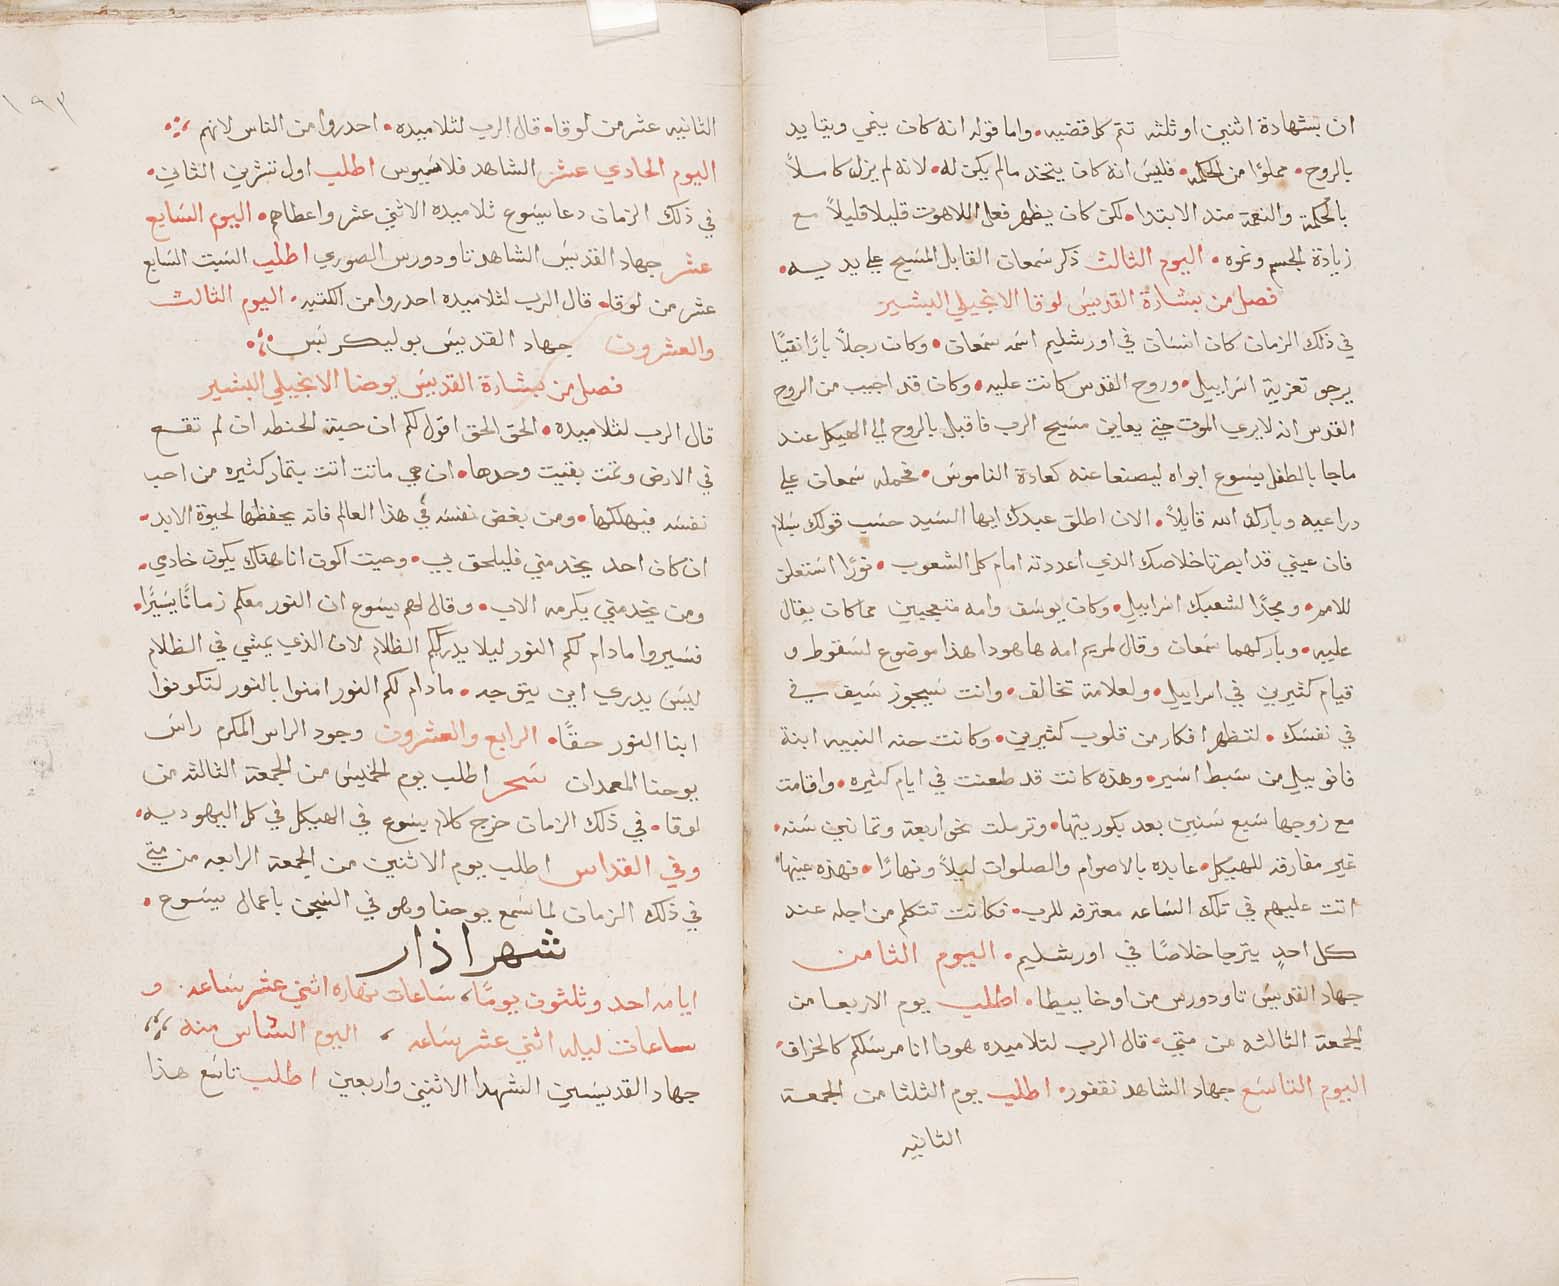 ان بشهادة اثنين او ثلثه تتم كل قضيه• واما قوله انه كان ينمي ويتايد
بالروح• مملوًا من الحكمه• فليس انه كان يتخد مالم يكن له• لانه لم يزل كاملاً
بالحكمة والنعمة مند الابتدا• لكن كان يظهر فعل اللاهوت قليلا قليلاً مع
زيادة الجسم ونموه• اليوم الثالث ذكر سمعان القابل المسيح علي يديه•
فصل من بشارة القديس لوقا الانجيلي البشير
في ذلك الزمان كان انسان في اورشليم اسمه سمعان• وكان رجلاً بارًا نقيًا
يرجو تعزية اسراييل• وروح القدس كانت عليه• وكان قد اجيب من الروح
القدس انه لا يري الموت حتي يعاين مسيح الرب فاقبل بالروح الي الهيكل عند
ماجا بالطفل يسوع ابواه ليصنعا عنه كعادة الناموس• فحمله سمعان علي
دراعيه وبارك الله قايلاً• الان اطلق عبدك ايها السيد حسب قولك بسلام
فان عيني قد ابصرتا خلاصك الذي اعددته امام كل الشعوب• نورًا استعلن
للامم• ومجدًا لشعبك اسراييل• وكان يوسف وامه متعجبين مما كان يقال
عليه• وباركهما سمعان وقال لمريم امه ها هودا هذا موضوع لسقوط و
قيام كثيرين في اسراييل• ولعلامة تخالف• وانت سيجوز سيف في
في نفسك• لتظهر افكار من قلوب كثيرين• وكانت حنه النبييه ابنة
فانوييل من سبط اشير• وهذه كانت قد طعنت في ايام كثيره• واقامت
مع زوجها سبع سنين بعد بكوريتها• وترملت نحو اربعة وثمانين سنه•
غير مفارقه للهيكل• عابده بالاصوام والصلوات ليلاً ونهارًا• فهذه عينها
اتت عليهم في تلك الساعه معترفه للرب• فكانت تتكلم من اجله عند
كل احدٍ يترجا خلاصًا في اورشليم• اليوم الثامن
جهاد القديس تاودورس من اوخاييطا• اطلب يوم الاربعا من
الجمعة الثالثه من متي• قال الرب لتلاميده هودا انا مرسلكم كالخراف•
اليوم التاسع جهاد الشاهد نقفور• اطلب يوم الثلثا من الجمعة
الثانيه
١٩٢
الثانيه عشر من لوقا• قال الرب لتلاميده• احدروا من الناس لانهم
اليوم الحادي عشر الشاهد فلاسيوس اطلب اول تشرين الثاني•
في ذلك الزمان دعا يسوع تلاميده الاثني عشر واعطاهم• اليوم السابع
عشر جهاد القديس الشاهد تاودورس الصوري اطلب السبت السابع
عشر من لوقا• قال الرب لتلاميده احدروا من الكتبه• اليوم الثالث
والعشرون جهاد القديس بوليكربس
فصل من بشارة القديس يوحنا الانجيلي البشير
قال الرب لتلاميده• الحق الحق اقول لكم ان حبة الحنطه ان لم تقع
في الارض وتمت بقيت وحدها• ان هي ماتت اتت بثمار كثيره من احب
نفسه فيهلكها• ومن بغض نفسه في هذا العالم فانه يحفظها لحيوة الابد•
ان كان احد يخدمني فليلحق بي• وحيت اكون انا هناك يكون خادمي•
ومن يخدمني يكرمه الاب• وقال لهم يسوع ان النور معكم زمانًا يسيرًا•
فسيروا مادام لكم النور ليلا يدرككم الظلام لان الذي يمشي في الظلام
ليس يدري اين يتوجه• مادام لكم النور امنوا بالنور لتكونوا
ابنا النور حقًا• الرابع والعشرون وجود الراس المكرم راس
يوحنا المعمدان سحر اطلب يوم الخميس من الجمعة الثالثه من
لوقا• في ذلك الزمان خرج كلام يسوع في الهيكل في كل اليهوديه•
وفي القداس اطلب يوم الاثنين من الجمعة الرابعه من متي
في ذلك الزمان لما سمع يوحنا وهو في السجن باعمال يسوع•
شهر اذار
ايامه احد وثلثون يومًا، ساعات نهاره اثني عشر ساعه• و
ساعات ليله اثني عشر ساعه، اليوم السادس منه
جهاد القديسين الشهدا الاثنين واربعين اطلب تاسع هذا